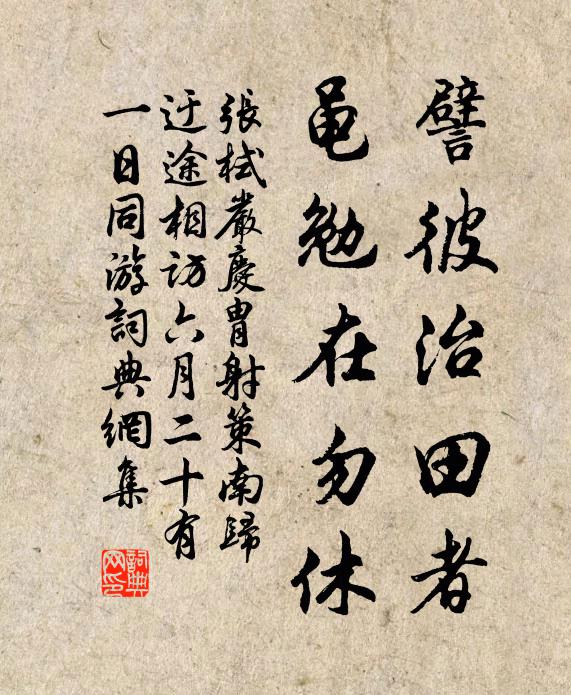 譬彼治田者
黽勉在勿休
張栻嚴慶胄射策南歸
迂途相訪六月二十有
一日同游詞典網集
詞典網印